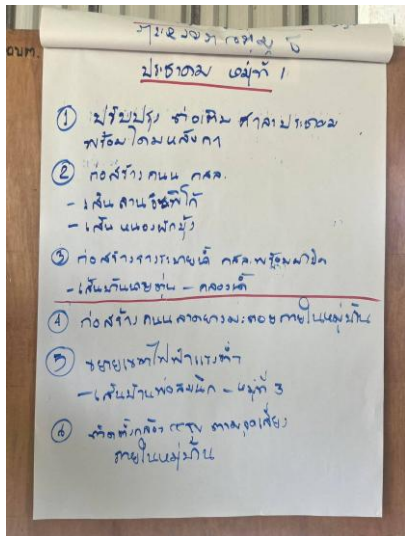 อบต.
ประชาคม หมู่ที่ 1
① ปรับปรุง ต่อเติม ศาลาประชาคม
พร้อมโดมหลังคา
② ก่อสร้างถนน คสล.
- เส้น
- เส้น หนองผักบุ้ง
③ ก่อสร้างรางระบายน้ำ คสล. พร้อมฝาปิด
- เส้นบ้าน
④ ก่อสร้างถนนลาดยางมะตอยภายในหมู่บ้าน
5 ขยายเขตไฟฟ้าแรงต่ำ
- เส้นบ้านพ่อสมนึก - หมู่ที่ 3
⑥ ติดตั้งกล้อง ตามจุดเสี่ยง
ภายในหมู่บ้าน